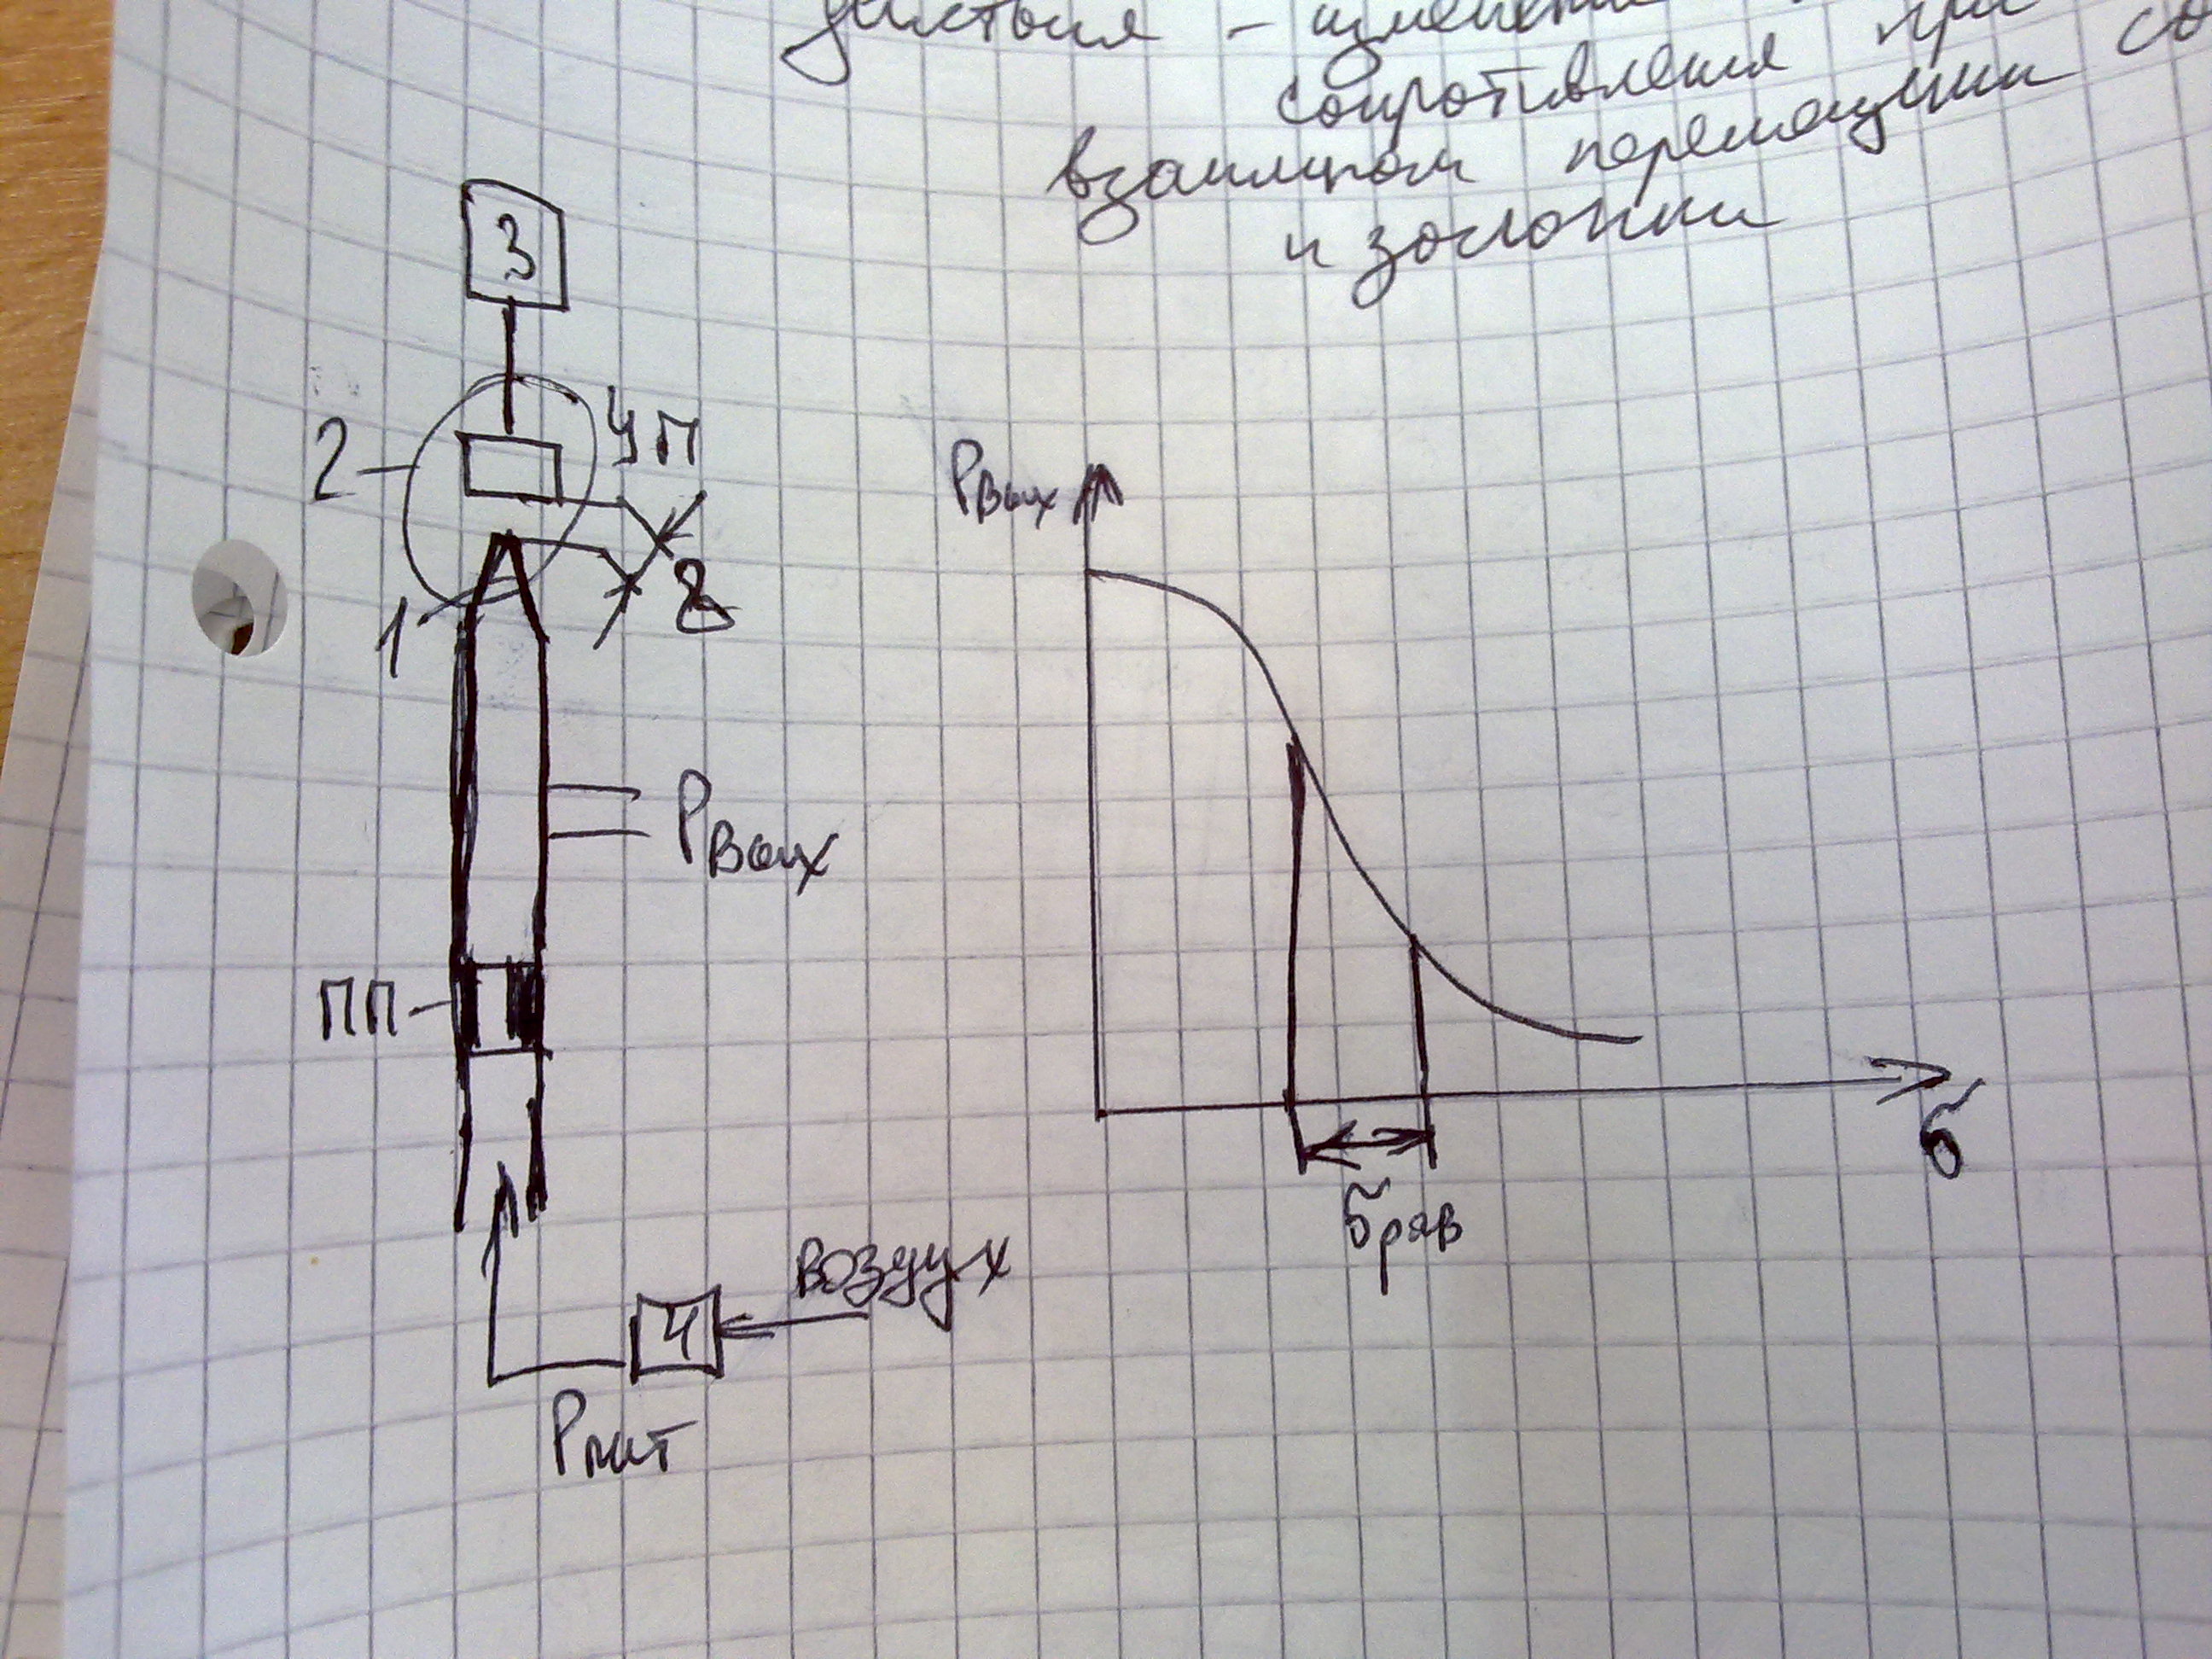 действия - изменение
сопротивления при
взаимном перемещении со
и заслонки
3
2
УП
1
Pвых
ПП
воздух
4
Pпит
Pвых
δ
δраб